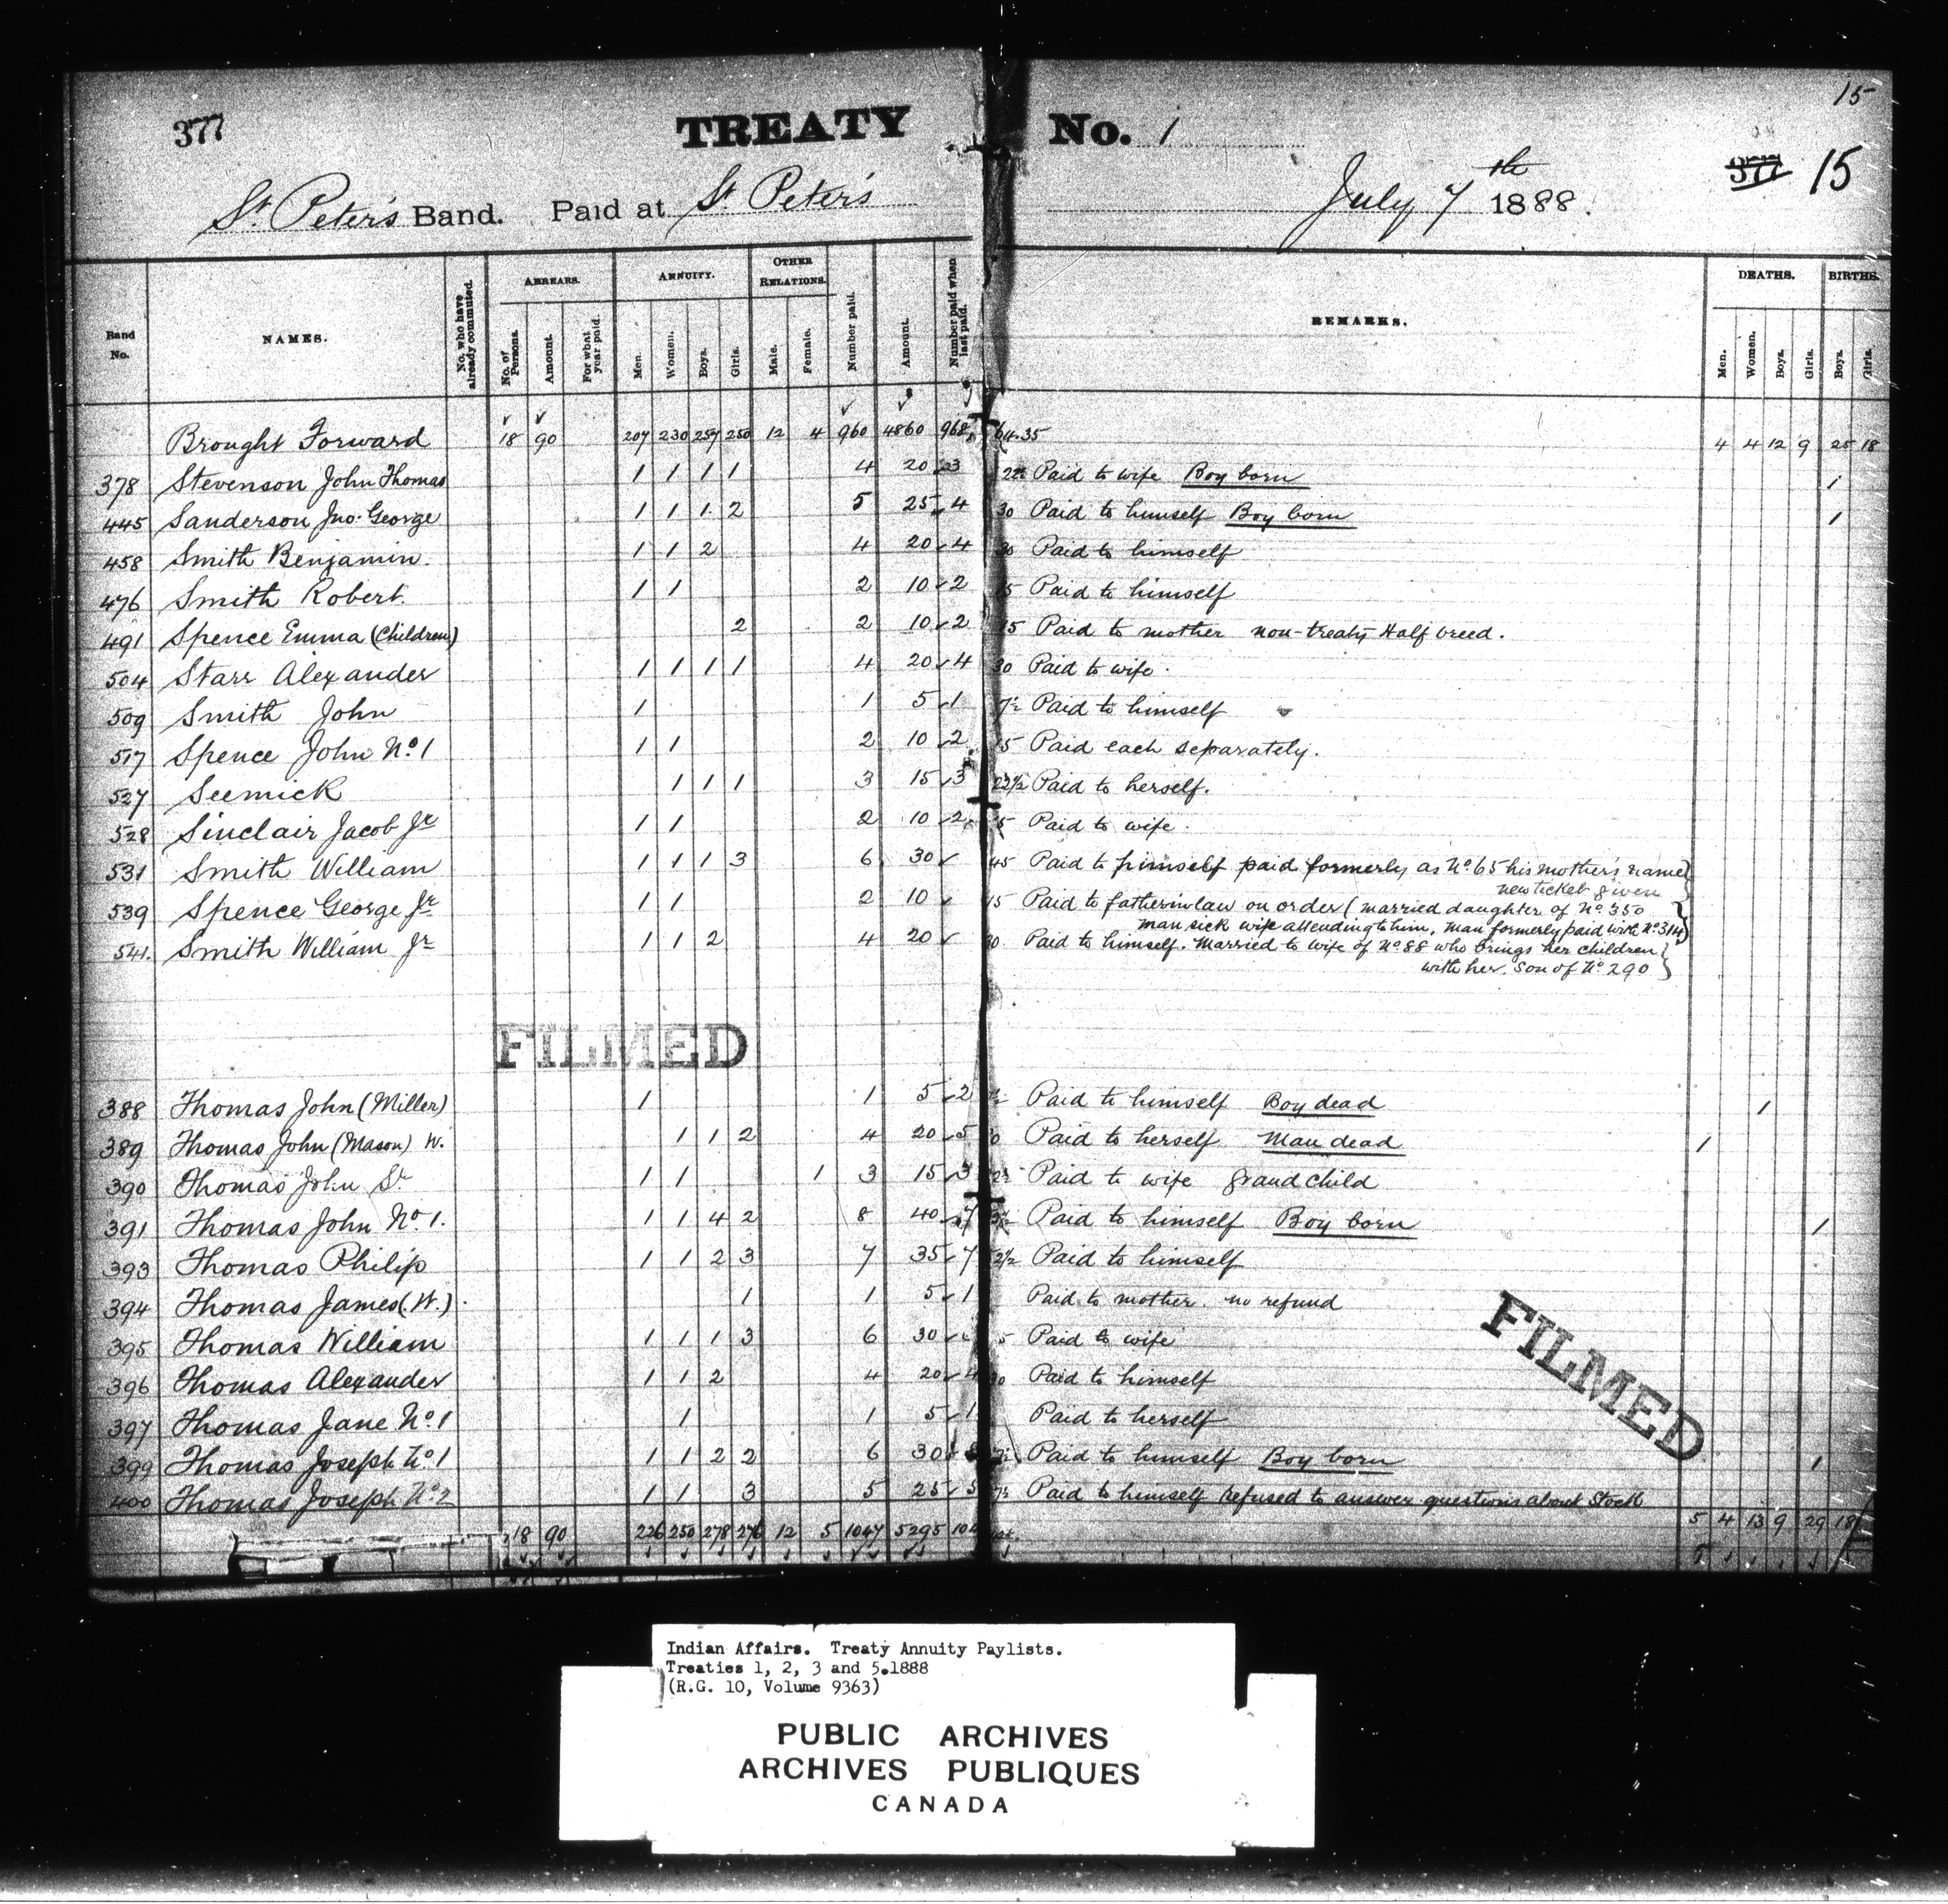 15
377 TREATY No. 1 377 15
St. Peter's Band. Paid at St Peter's July 7th 1888.
Band No. NAMES. No. who have already commuted. ARREARS. No. of Persons. Amount. For what year paid. ANNUITY. Men. Women. Boys. Girls. OTHER RELATIONS. Male. Female. Number paid. Amount. Number paid when last paid. REMARKS. DEATHS. Men. Women. Boys. Girls. BIRTHS. Boys. Girls.
Brought Forward 18 90 207 230 257 250 12 4 960 4860 968 4 4 12 9 25 18
378 Stevenson John Thomas 1 1 1 1 4 20 3 Paid to wife Boy born 1
445 Sanderson Jno. George 1 1 1 2 5 25 4 30 Paid to himself Boy born 1
458 Smith Benjamin. 1 1 2 4 20 4 30 Paid to himself
476 Smith Robert. 1 1 2 10 2 15 Paid to himself
491 Spence Emma (Children) 2 2 10 2 15 Paid to mother non-treaty Half breed.
504 Starr Alexander 1 1 1 1 4 20 4 30 Paid to wife.
509 Smith John 1 1 5 1 Paid to himself
517 Spence John No. 1 1 1 2 10 2 15 Paid each separately.
527 Seemick 1 1 1 3 15 3 22½ Paid to herself.
528 Sinclair Jacob Jr 1 1 2 10 2 Paid to wife.
531 Smith William 1 1 1 3 6 30 45 Paid to himself paid formerly as No. 65 his mother's name
new ticket given
539 Spence George Jr 1 1 2 10 15 Paid to father in law on order (married daughter of No. 350
man sick wife attending to him, man formerly paid with No. 314)
541. Smith William Jr 1 1 2 4 20 30 Paid to himself. Married to wife of No. 88 who brings her children
with her. Son of No. 290
FILMED
388 Thomas John (Miller) 1 1 5 2 Paid to himself Boy dead 1
389 Thomas John (Mason) W. 1 1 2 4 20 5 Paid to herself Man dead 1
390 Thomas John Sr 1 1 1 3 15 3 Paid to wife grandchild
391 Thomas John No. 1. 1 1 4 2 8 40 7 Paid to himself Boy born 1
393 Thomas Philip 1 1 2 3 7 35 7 Paid to himself
394 Thomas James (W.) 1 1 5 1 Paid to mother. no refund
395 Thomas William 1 1 1 3 6 30 Paid to wife
396 Thomas Alexander 1 1 2 4 20 4 Paid to himself
397 Thomas Jane No. 1 1 1 5 1 Paid to herself
399 Thomas Joseph No. 1 1 1 2 2 6 30 Paid to himself Boy born 1
400 Thomas Joseph No. 2 1 1 3 5 25 5 Paid to himself Refused to answer questions about Stock
18 90 226 250 278 276 12 5 1047 5295 5 4 13 9 29 18
FILMED
Indian Affairs. Treaty Annuity Paylists.
Treaties 1, 2, 3 and 5.1888
(R.G. 10, Volume 9363)
PUBLIC ARCHIVES
ARCHIVES PUBLIQUES
CANADA